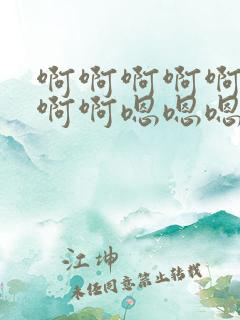 啊啊啊啊啊
啊啊嗯嗯嗯
江坤
未经同意禁止转载